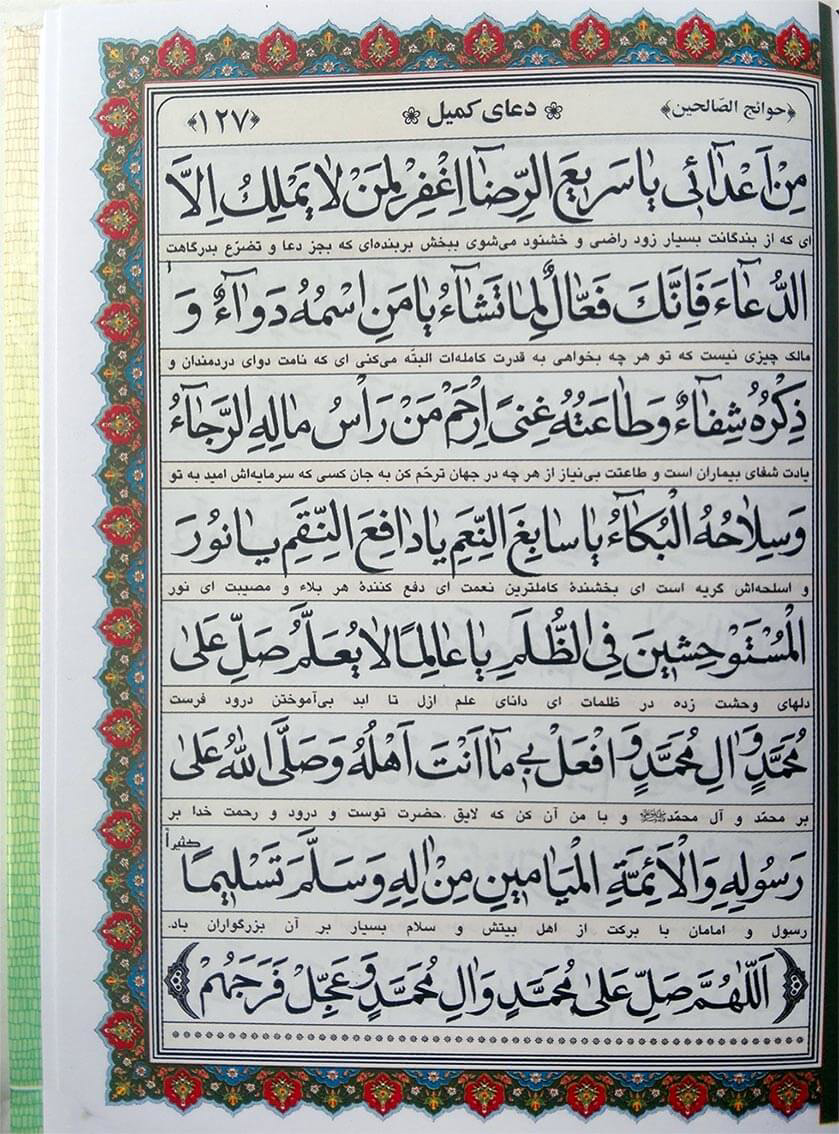 ﴿حوائج الصّالحین﴾ دعای کمیل ﴿۱۲۷﴾
مِنْ اَعْدٰآئی یٰا سَریعَ الرِّضٰآ اِغْفِرْ لِمَنْ لٰا یَمْلِكُ اِلَّا
ای که از بندگانت بسیار زود راضی و خشنود می‌شوی ببخش بربنده‌ای که بجز دعا و تضرّع بدرگاهت
الدُّعٰآءَ فَاِنَّكَ فَعّٰالٌ لِمٰا تَشٰآءُ یٰا مَنِ اسْمُهُ دَوٰآءٌ وَ
مالک چیزی نیست که تو هر چه بخواهی به قدرت کامله‌ات البتّه می‌کنی ای که نامت دوای دردمندان و
ذِکْرُهُ شِفٰآءٌ وَ طٰاعَتُهُ غِنیً اِرْحَمْ مَنْ رَأْسُ مٰالِهِ الرَّجٰآءُ
یادت شفای بیماران است و طاعتت بی‌نیاز از هر چه در جهان ترحّم کن به جان کسی که سرمایه‌اش امید به تو
وَ سِلٰاحُهُ الْبُکٰآءُ یٰا سٰابِغَ النِّعَمِ یٰا دٰافِعَ النِّقَمِ یٰا نُورَ
و اسلحه‌اش گریه است ای بخشندهٔ کاملترین نعمت ای دفع کنندهٔ هر بلاء و مصیبت ای نور
الْمُسْتَوْحِشینَ فِی الظُّلَمِ یٰا عٰالِمًا لٰا یُعَلَّمُ صَلِّ عَلیٰ
دلهای وحشت زده در ظلمات ای دانای علم ازل تا ابد بی‌آموختن درود فرست
مُحَمَّدٍ وَ اٰلِ مُحَمَّدٍ وَ افْعَلْ بی مٰا اَنْتَ اَهْلُهُ وَ صَلَّی اللّٰهُ عَلیٰ
بر محمّد و آل محمّد ﷺ و با من آن کن که لایق حضرت توست و درود و رحمت خدا بر
رَسُولِهِ وَ الْاَئِمَّةِ الْمَیٰامینِ مِنْ اٰلِهِ وَ سَلَّمَ تَسْلیمًا کثیراً
رسول و امامان با برکت از اهل بیتش و سلام بسیار بر آن بزرگواران باد.
اَللّٰهُمَّ صَلِّ عَلیٰ مُحَمَّدٍ وَ اٰلِ مُحَمَّدٍ وَ عَجِّلْ فَرَجَهُمْ